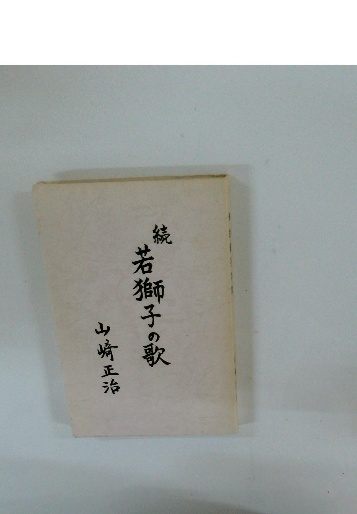 続
若獅子の歌
山崎正治